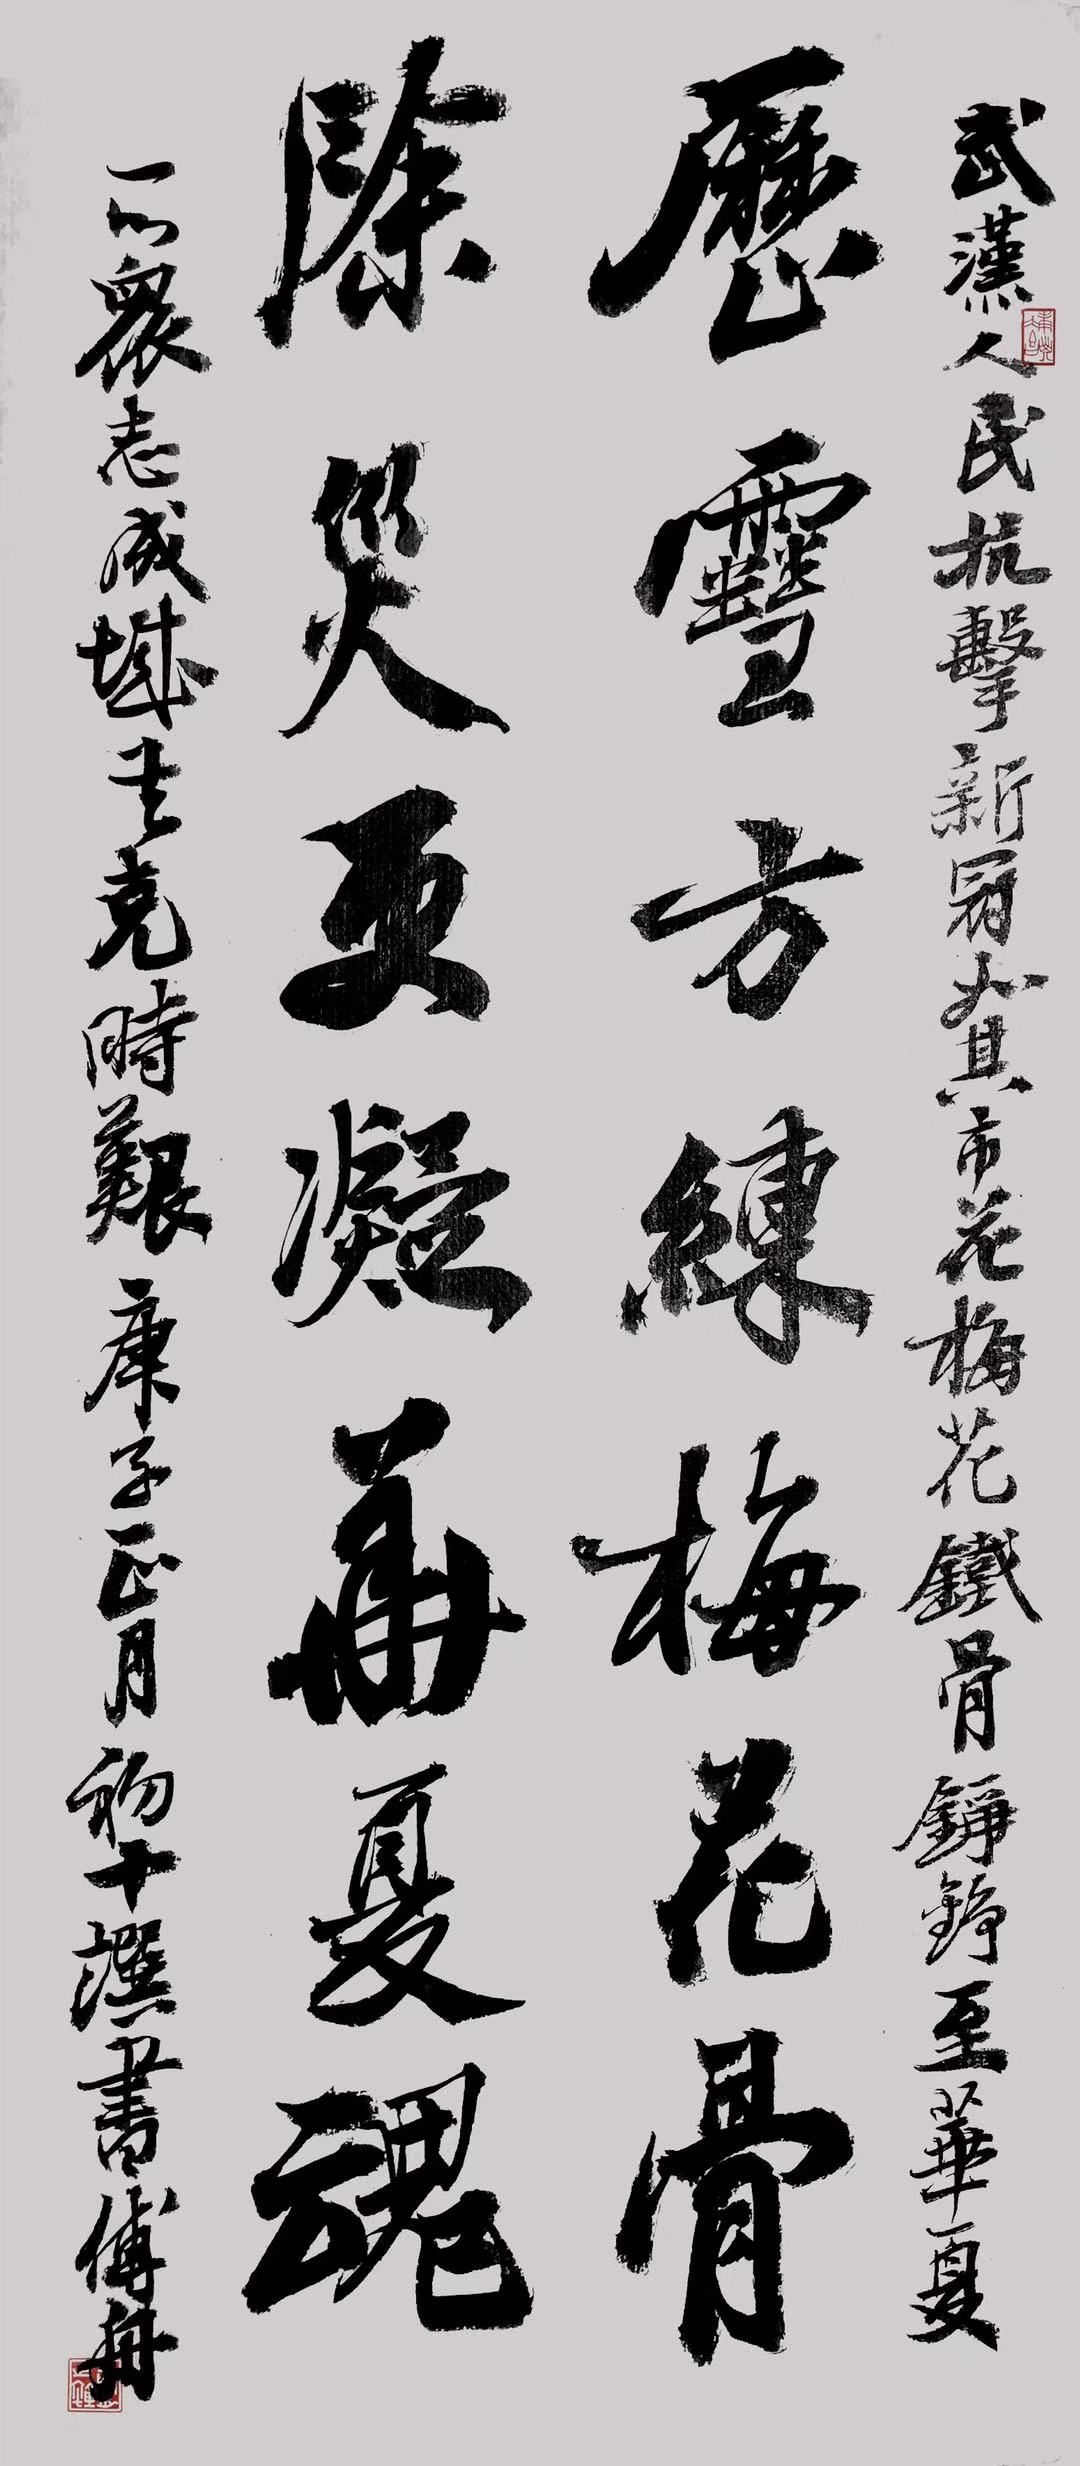 武漢人民抗擊新冠如其市花梅花鐵骨錚錚至華夏
歷雪方練梅花骨
除災更凝華夏魂
一心眾志成城共克時艱庚子正月初十撰書傅舟